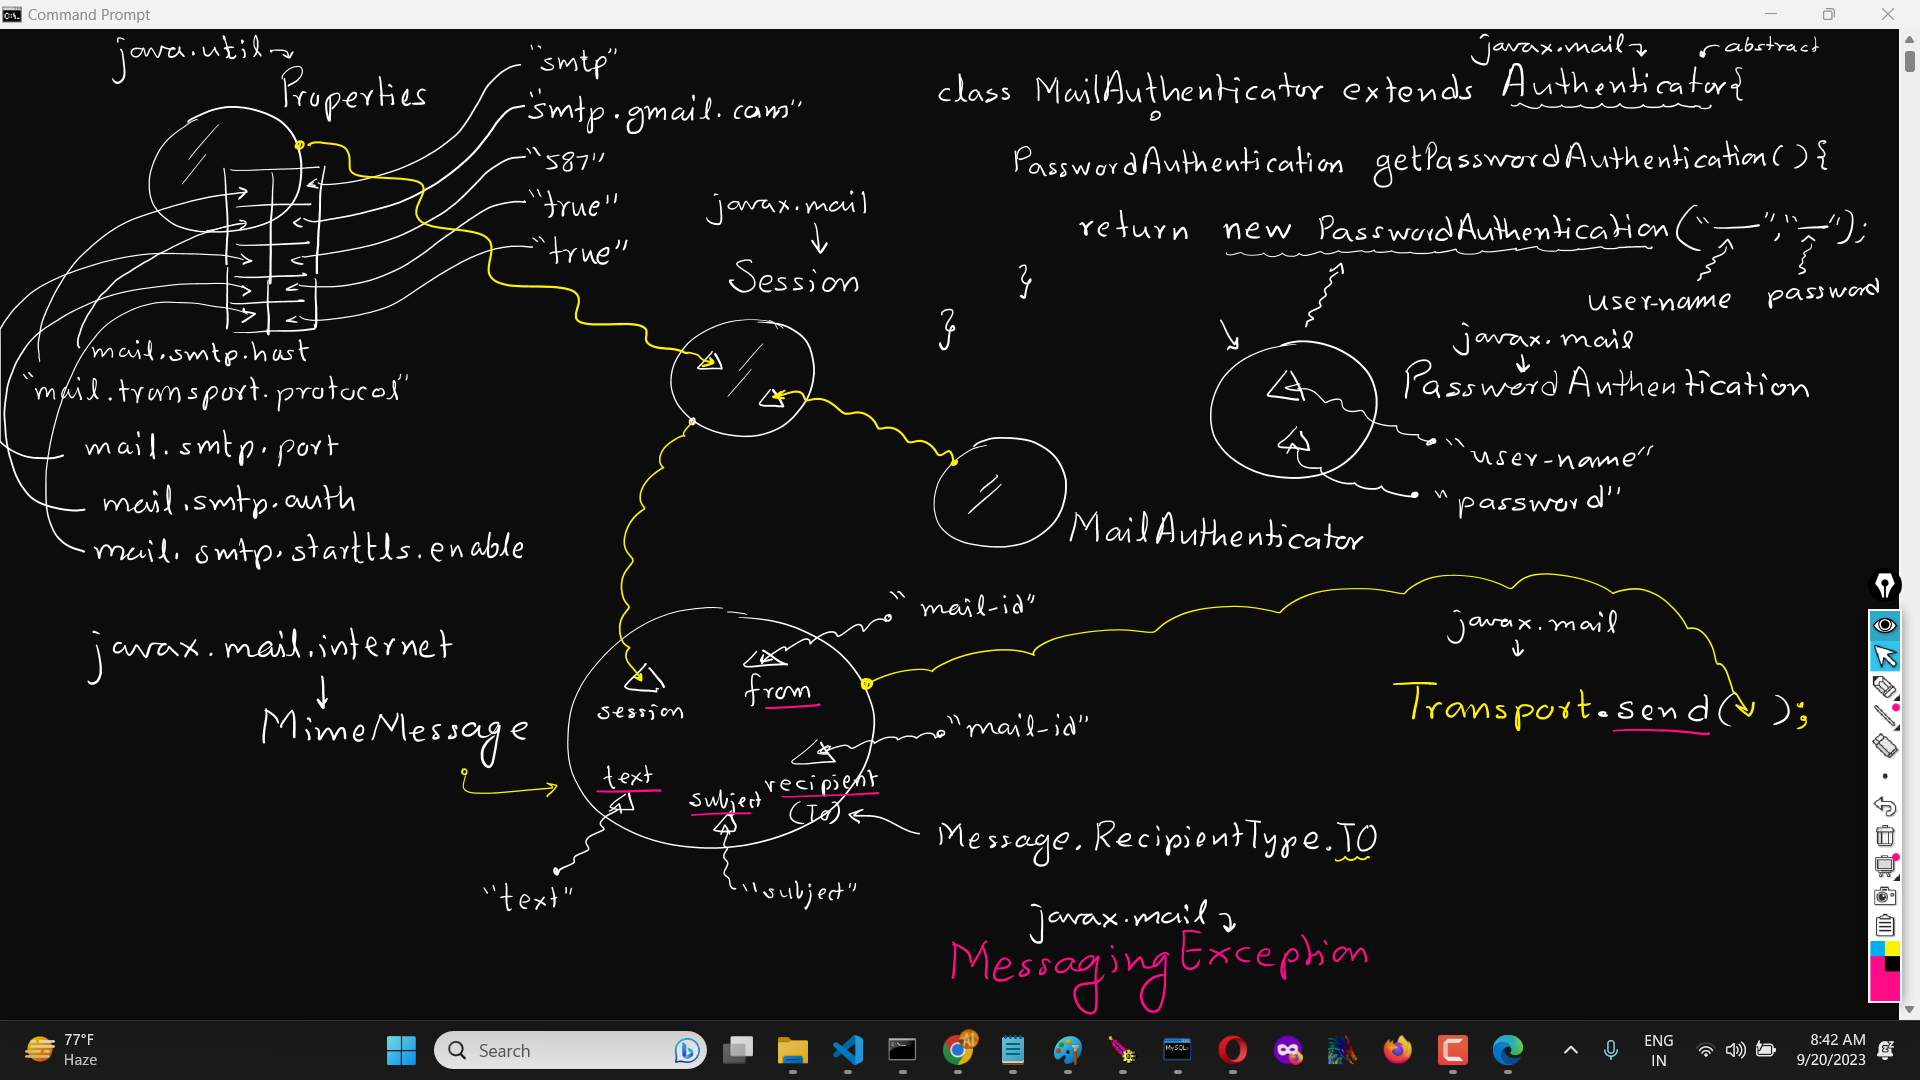 Command Prompt
java.util
Properties
"smtp"
"smtp.gmail.com"
"587"
"true"
"true"
mail.smtp.host
"mail.transport.protocol"
mail.smtp.port
mail.smtp.auth
mail.smtp.starttls.enable
javax.mail
Session
javax.mail
abstract
class MailAuthenticator extends Authenticator{
PasswordAuthentication getPasswordAuthentication(){
return new PasswordAuthentication("—","—");
user-name password
}
}
javax.mail
PasswordAuthentication
"user-name"
"password"
MailAuthenticator
javax.mail.internet
MimeMessage
"mail-id"
from
session
"mail-id"
recipient
(To)
text
subject
"text"
"subject"
Message.RecipientType.TO
javax.mail
Transport.send( );
javax.mail
MessagingException
77°F
Haze
Search
MySQL
ENG
IN
8:42 AM
9/20/2023